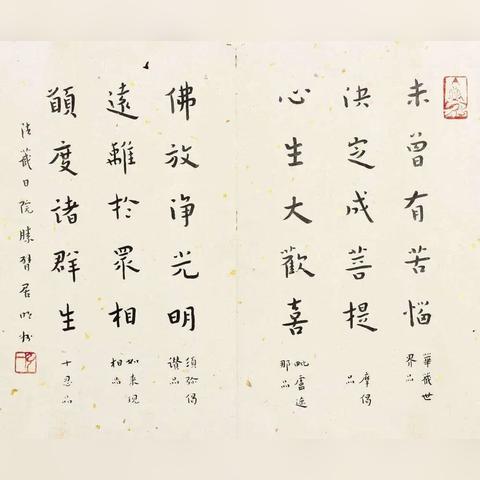 未曾有苦惱
華藏世
界品
決定成菩提
摩偈
品
心生大歡喜
毗盧遮
那品
佛放淨光明
須弥偈
讚品
遠離於眾相
如來現
相品
願度諸群生
十忍品
藏日院居